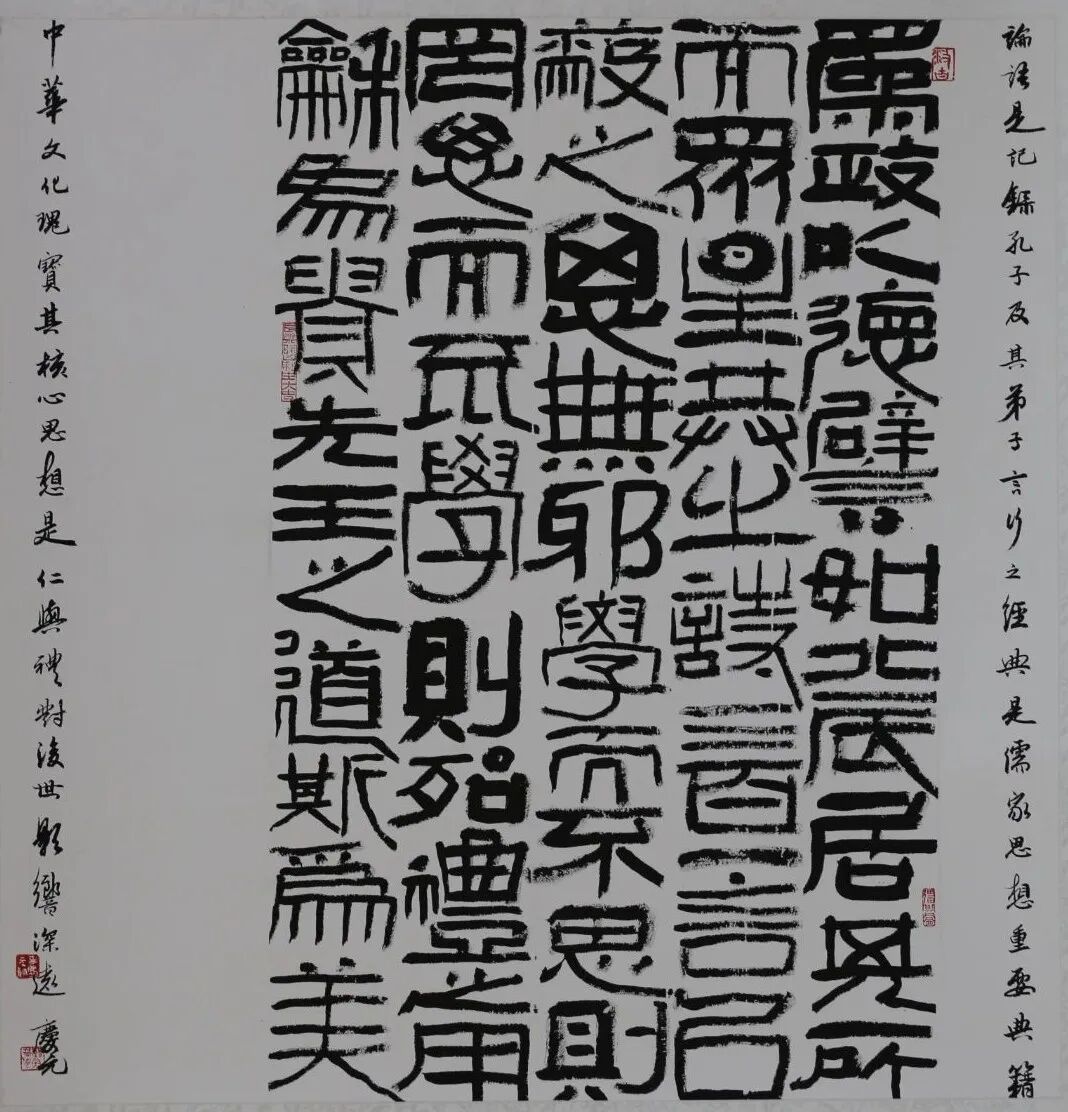 論語是記錄孔子及其弟子言行之經典是儒家思想重要典籍
為政以德譬如北辰居其所
而眾星共之詩三百一言以
蔽之思無邪學而不思則
罔思而不學則殆禮之用
龢為貴先王之道斯為美
中華文化瑰寶其核心思想是仁與禮對後世影響深遠 慶元